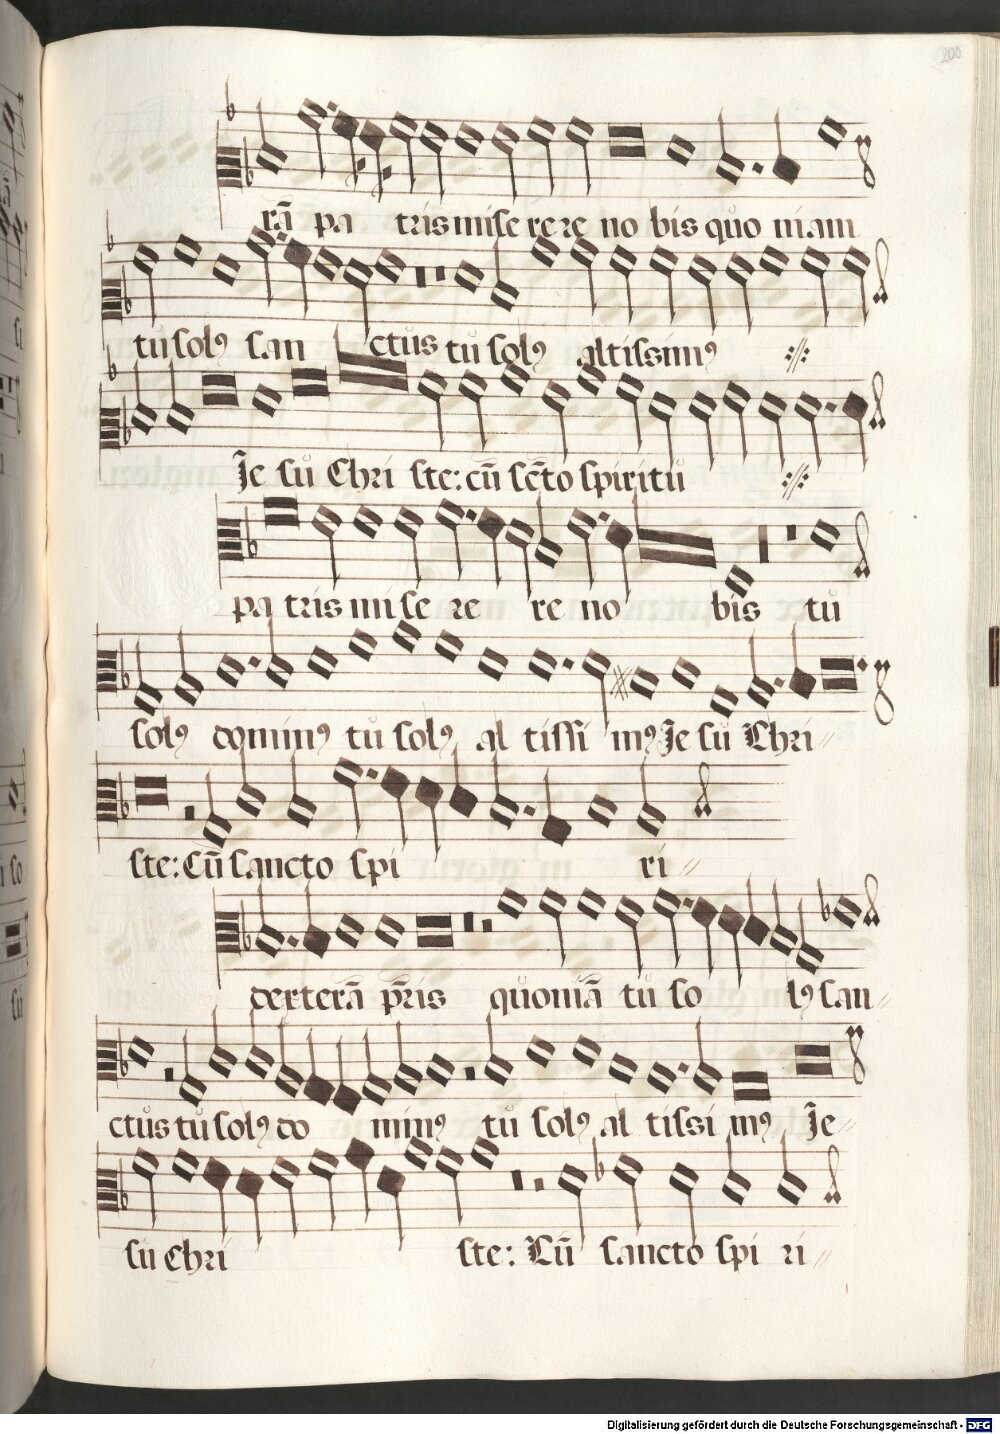 200
rā pa tris mise re re no bis quo niam
tu solꝰ san ctus tu solꝰ altissimꝰ
Je su Chri ste: cū sc̄to spiritu
pa tris mi se re re no bis tu
solꝰ dominꝰ tu solꝰ al tissi mꝰ Je su Chri
ste: Cū sancto spi ri
dexterā pr̄is quoniā tu so lꝰ san
ctus tu solꝰ do minꝰ tu solꝰ al tissi mꝰ Je
su Chri ste: Cū sancto spi ri
Digitalisierung gefördert durch die Deutsche Forschungsgemeinschaft - DFG